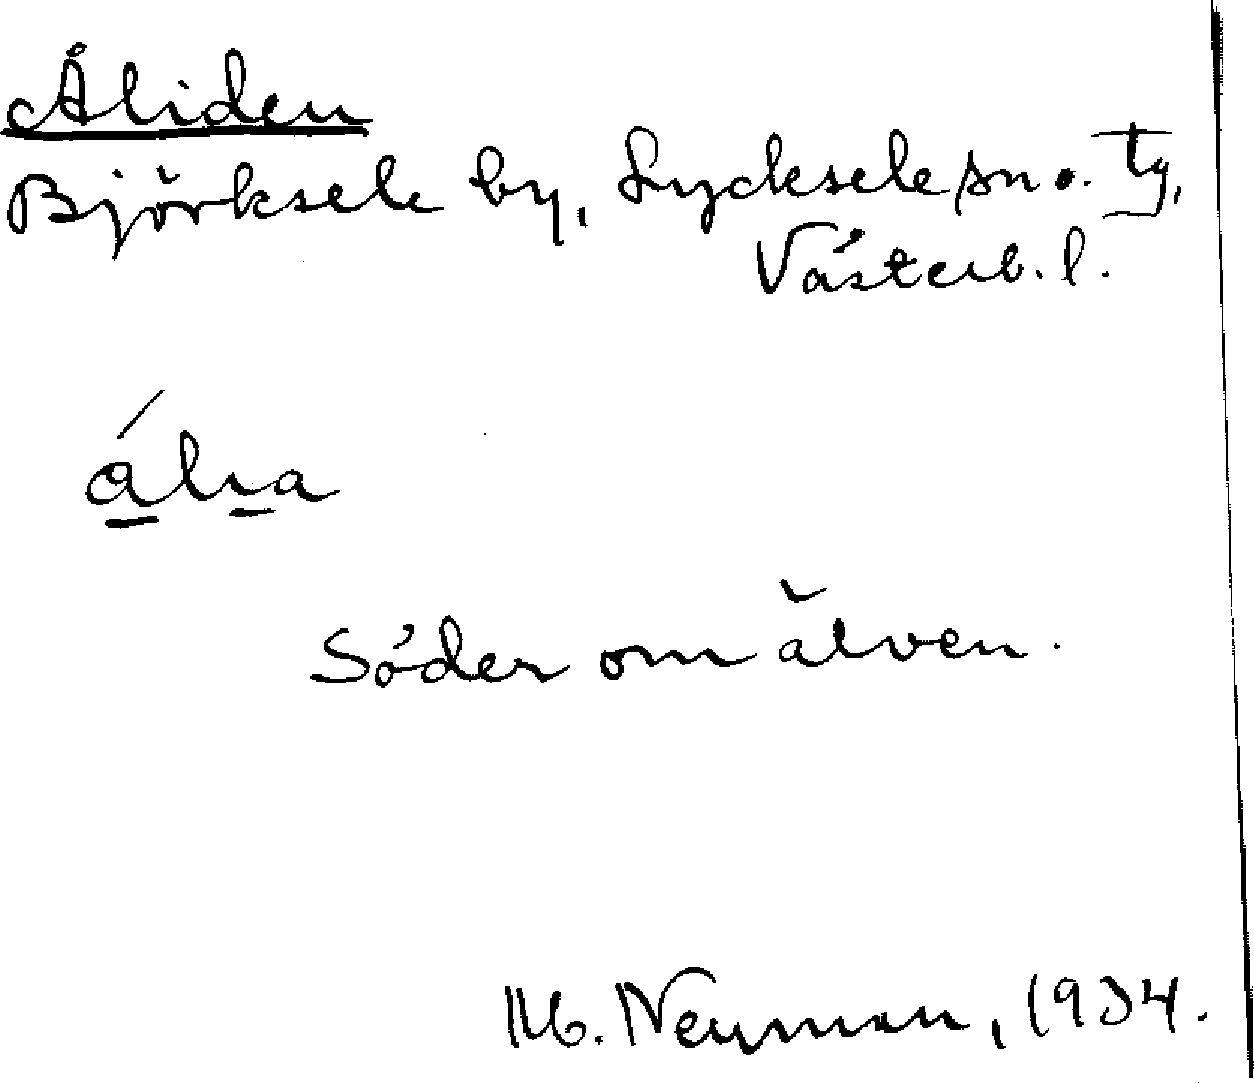 Åliden
Björksele by, Lycksele sn o. tg,
Västerb. l.
álıa
Söder om älven.
M. Neyman, 1934.